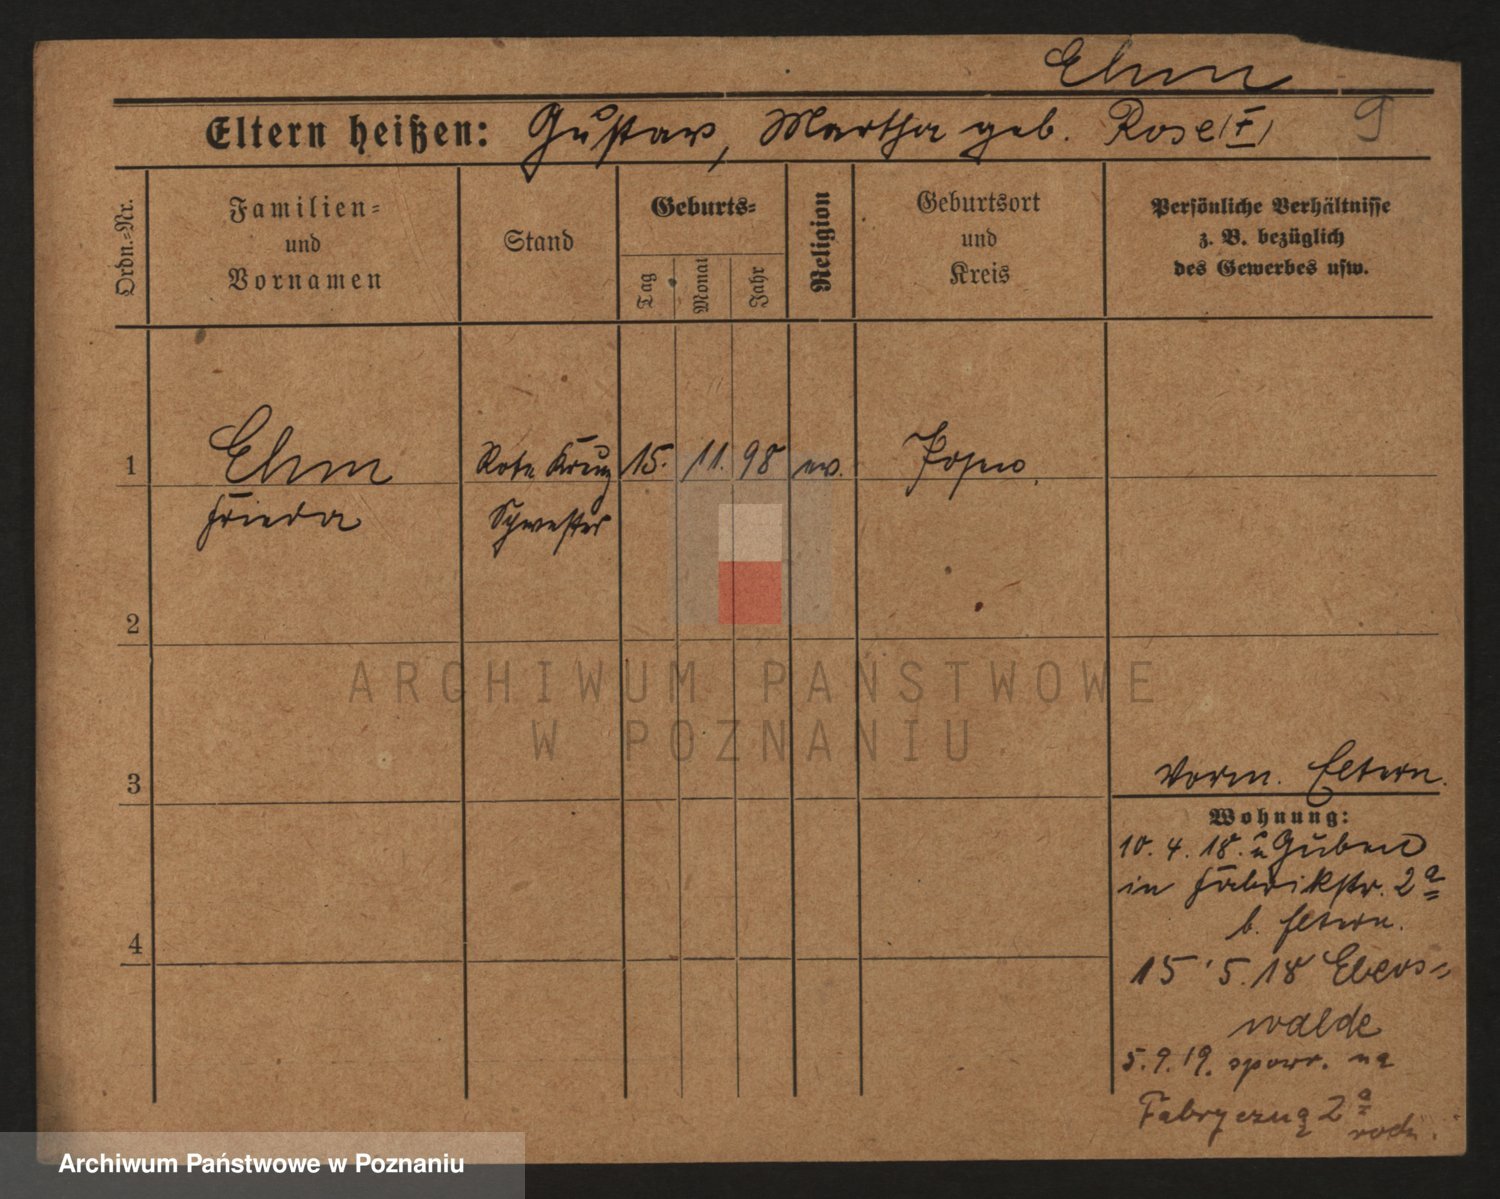 Ehm
Eltern heißen: Gustav, Martha geb. Rose (†) 9
Ordn.=Nr.
Familien=
und
Vornamen
Stand
Geburts=
Tag
Monat
Jahr
Religion
Geburtsort
und
Kreis
Persönliche Verhältnisse
z. B. bezüglich
des Gewerbes usw.
1 Ehm Rote Kreuz 15. 11. 98 ev. Posen
Frieda Schwester
2
ARCHIWUM PAŃSTWOWE
W POZNANIU
3
Vorm. Eltern.
Wohnung:
10. 4. 18. Guben
in Fabrikstr. 2a
b. Eltern.
4
15.5.18 Ebers=
walde
5.9.19. spowr. na
Fabryczną 2a
rodz.
Archiwum Państwowe w Poznaniu